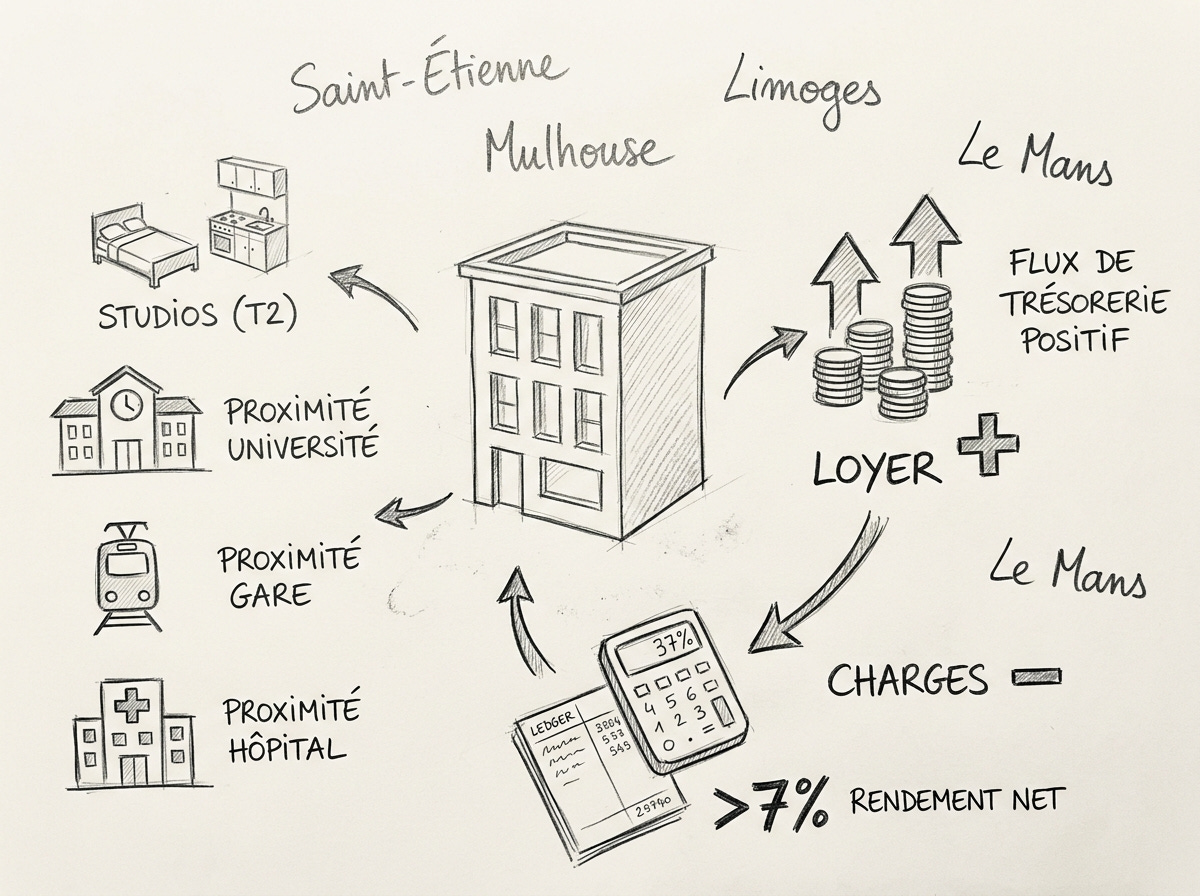 Saint-Étienne
Limoges
Mulhouse
Le Mans
STUDIOS (T2)
PROXIMITÉ
UNIVERSITÉ
PROXIMITÉ
GARE
PROXIMITÉ
HÔPITAL
FLUX DE
TRÉSORERIE
POSITIF
LOYER +
Le Mans
CHARGES -
37%
4 5 6
1 2 3
0 . =
LEDGER
3804
553
545
29740
>7% RENDEMENT NET